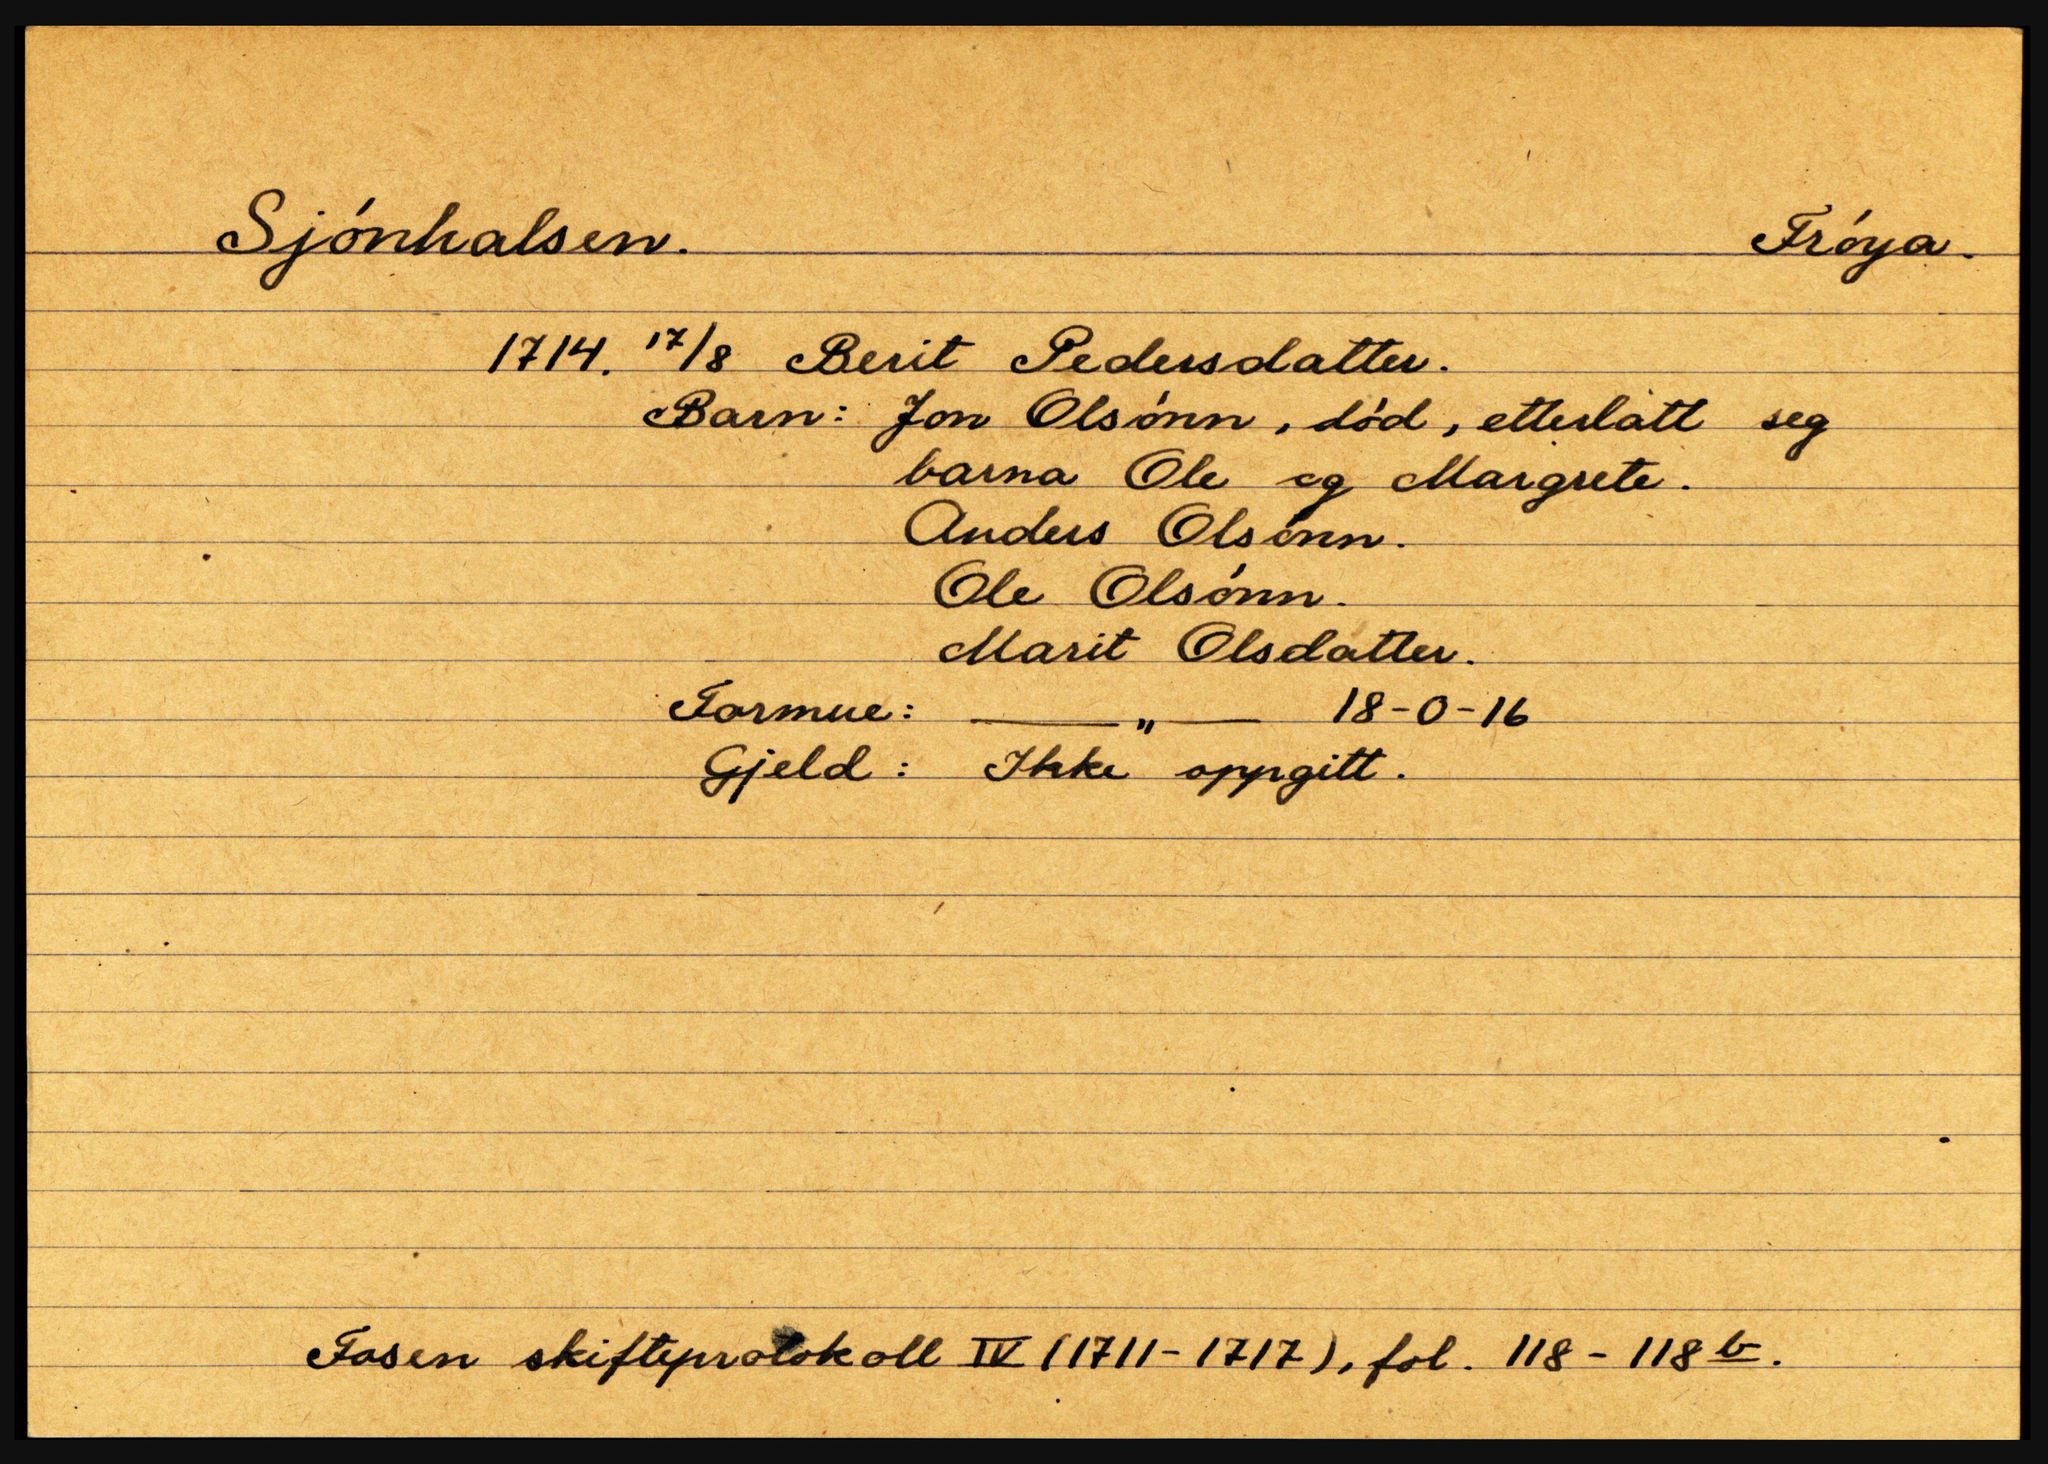 Sjónhalsen. Fróya.
1714. 17/8 Berit Pedersdatter.
Barn: Jon Olsónn, död, etterlatt seg
barna Ole og Margrete.
Anders Olsónn.
Ole Olsónn.
Marit Olsdatter.
Formue: —— " —— 18-0-16
Gjeld: Ikke oppgitt.
Fosen skifteprotokoll IV (1711-1717), fol. 118-118b.